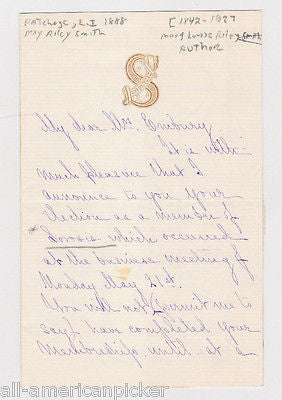 Patchoge, L.I 1888
May Riley Smith
[1842-1927
Mary Louise Riley Smith
Author
S
My dear Mrs. Embury
It is with
much pleasure that I
announce to you, your
election as a member of
* Sorosis which occurred
at the business meeting of
Monday May 21st.
You will not permit me to
say I have completed your
Membership until at a
all-americanpicker